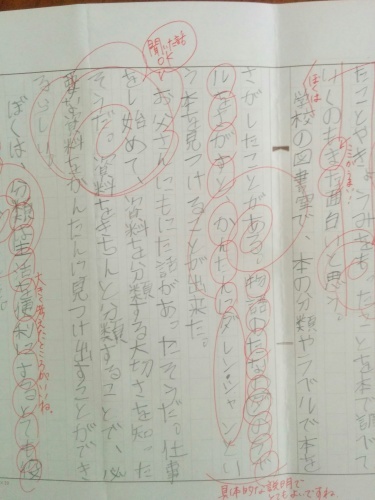 たことやきょうみをもったことを本で調べて
くのもまた面白いと思う。
ぼくは
学校の図書室で、本の分類やラベルで本を
さがしたことがある。物語のたなの
ルをさがすと、かんたんにダレンシャンとい
う本を見つけることが出来た。
聞いた話
OK
お父さんにもにた話があったそうだ。仕事
をし始めて、資料を分類する大切さを知った
そうだ。資料をきちんと分類することで、必
要な資料をかんたんに見つけ出すことができ
るらしい。
ぼくは、分類は生活を便利にするとても役
大きく考えたところがいいね
具体的な説明で
とてもよいですね